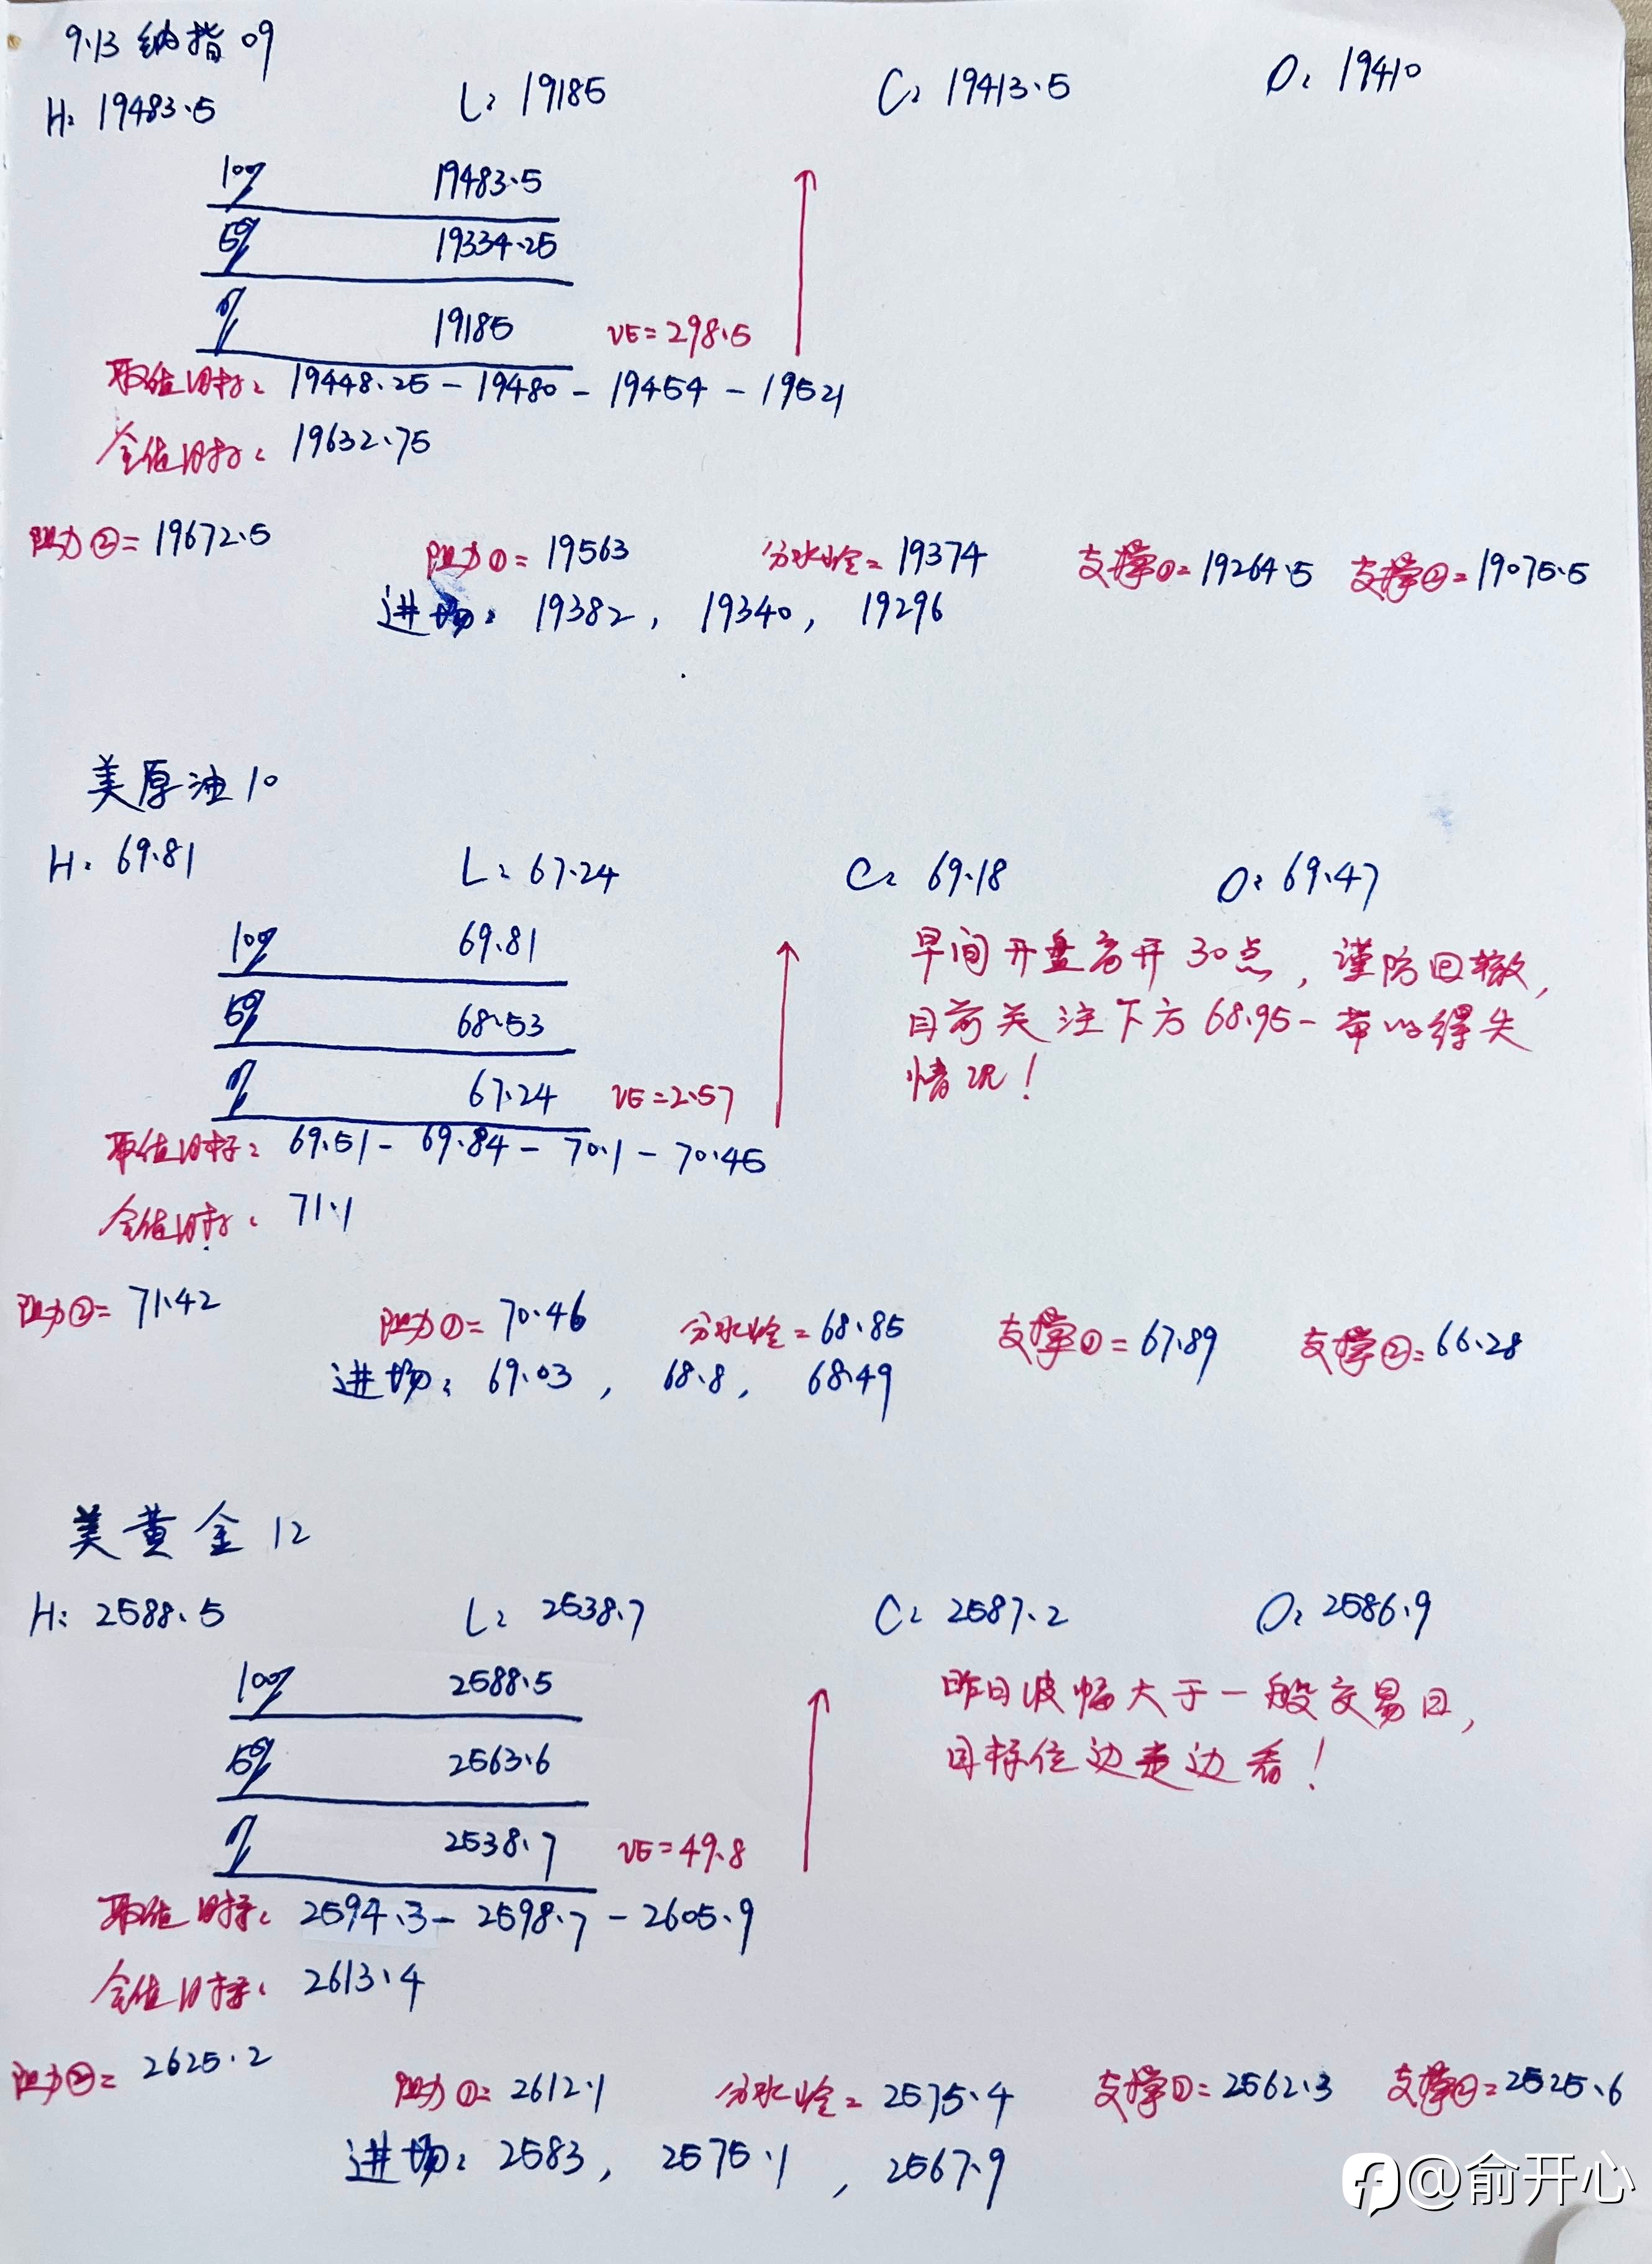 9.13 纳指09
H: 19483.5 L: 19185 C: 19413.5 O: 19410
100% 19483.5
50% 19334.25
0% 19185 VE=298.5
取值目标: 19448.25 - 19480 - 19454 - 19521
全值目标: 19632.75
阻力②=19672.5 阻力①=19563 分水岭=19374 支撑①=19264.5 支撑②=19075.5
进场: 19382, 19340, 19296
美原油10
H: 69.81 L: 67.24 C: 69.18 O: 69.47
100% 69.81
50% 68.53
0% 67.24 VE=2.57
早间开盘高开30点,谨防回撤,
目前关注下方68.95一带的得失
情况!
取值目标: 69.51 - 69.84 - 70.1 - 70.45
全值目标: 71.1
阻力②=71.42 阻力①=70.46 分水岭=68.85 支撑①=67.89 支撑②=66.28
进场: 69.03, 68.8, 68.49
美黄金12
H: 2588.5 L: 2538.7 C: 2587.2 O: 2586.9
100% 2588.5
50% 2563.6
0% 2538.7 VE=49.8
昨日波幅大于一般交易日,
目标位边走边看!
取值目标: 2594.3 - 2598.7 - 2605.9
全值目标: 2613.4
阻力②=2625.2 阻力①=2612.1 分水岭=2575.4 支撑①=2562.3 支撑②=2525.6
进场: 2583, 2575.1, 2567.9
@俞开心